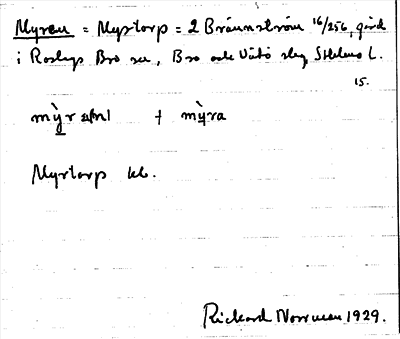 Myren = Myrtorp = 2 Brännström 16/256, gård
i Roslags Bro sn, Bro och Vätö skg, Sthlms l.
15.
mỳr + mỳra
Myrtorp kb.
Rickard Norrman 1929.